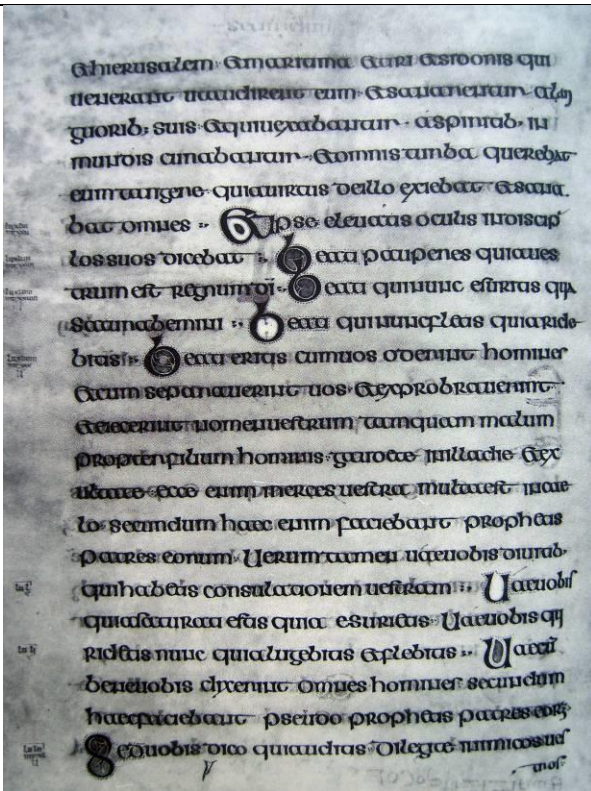 & hierusalem & maritima & tiri & sidonis qui
uenerant ut audirent eum & sanarentur a lan
guorib; suis & qui uexabantur a spiritab; in
mundis curabantur & omnis turba querebat
eum tangere quia uirtus de illo exiebat & sana
bat omnes Et ipse eleuatis oculis in discip
los suos dicebat Beati pauperes quia ues
trum est regnum dī Beati qui nunc esuritis qui
saturabemini Beati qui nunc fletis quia ride
bitis Beati eritis cum uos oderint homines
& cum separauerint uos & exprobrauerint
& eiecerint nomen uestrum tamquam malum
propter filium hominis gaudete in illa die & ex
ultate ecce enim merces uestra multa est in cae
lo secundum haec enim faciebant prophetis
patres eorum Uerum tamen uae uobis diuitib;
qui habetis consulationem uestram Uae uobis
qui saturati estis quia esurietis Uae uobis qui
ridetis nunc quia lugebitis & flebitis Uae cū
bene uobis dixerint omnes homines secundum
haec faciebant pseudo prophetis patres eorum
Sed uobis dico qui auditis diligite inimicos ues
tros